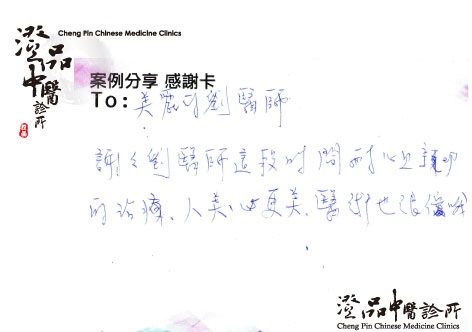 澄品中醫診所
Cheng Pin Chinese Medicine Clinics
案例分享 感謝卡
To：美麗的劉醫師
謝謝劉醫師這段時間耐心且親切
的治療、人美心更美、醫術也很優呦
澄品中醫診所
Cheng Pin Chinese Medicine Clinics